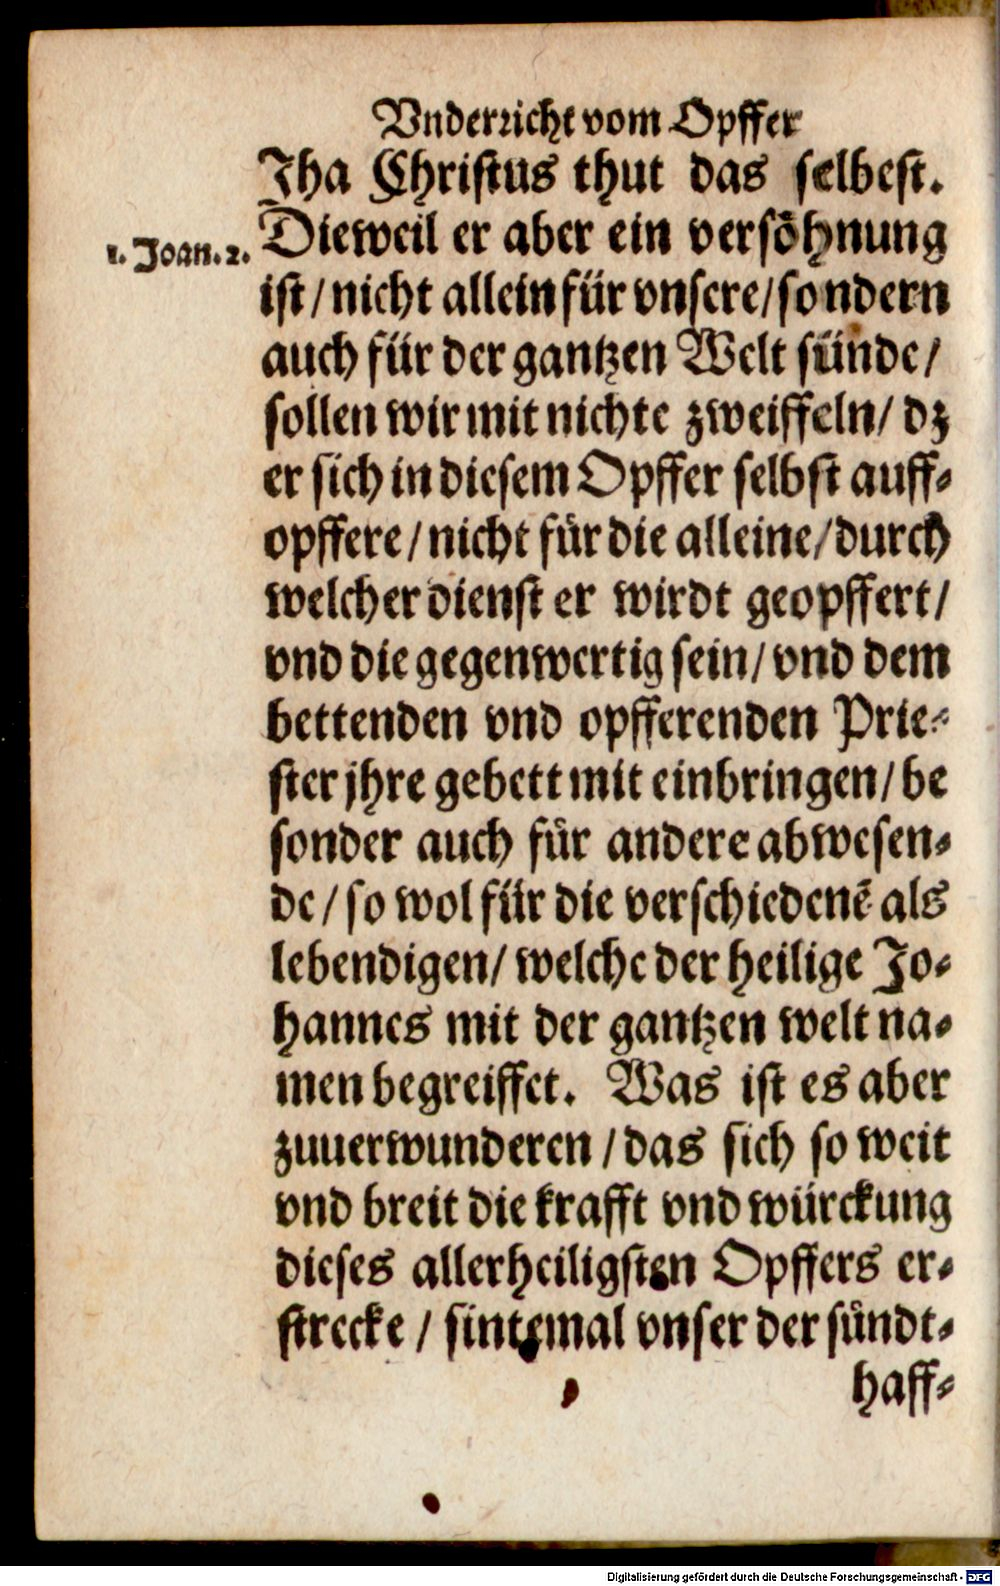 Vnderricht vom Opffer
Jha Christus thut das selbest.
1. Joan. 2.
Dieweil er aber ein versöhnung
ist / nicht allein für vnsere / sondern
auch für der gantzen Welt sünde /
sollen wir mit nichte zweiffeln / dz
er sich in diesem Opffer selbst auff-
opffere / nicht für die alleine / durch
welcher dienst er wirdt geopffert /
vnd die gegenwertig sein / vnd dem
bettenden vnd opfferenden Prie-
ster jhre gebett mit einbringen / be
sonder auch für andere abwesen-
de / so wol für die verschiedenẽ als
lebendigen / welche der heilige Jo-
hannes mit der gantzen welt na-
men begreiffet. Was ist es aber
zuuerwunderen / das sich so weit
vnd breit die krafft vnd würckung
dieses allerheiligsten Opffers er-
strecke / sintemal vnser der sündt-
haff-
Digitalisierung gefördert durch die Deutsche Forschungsgemeinschaft - DFG